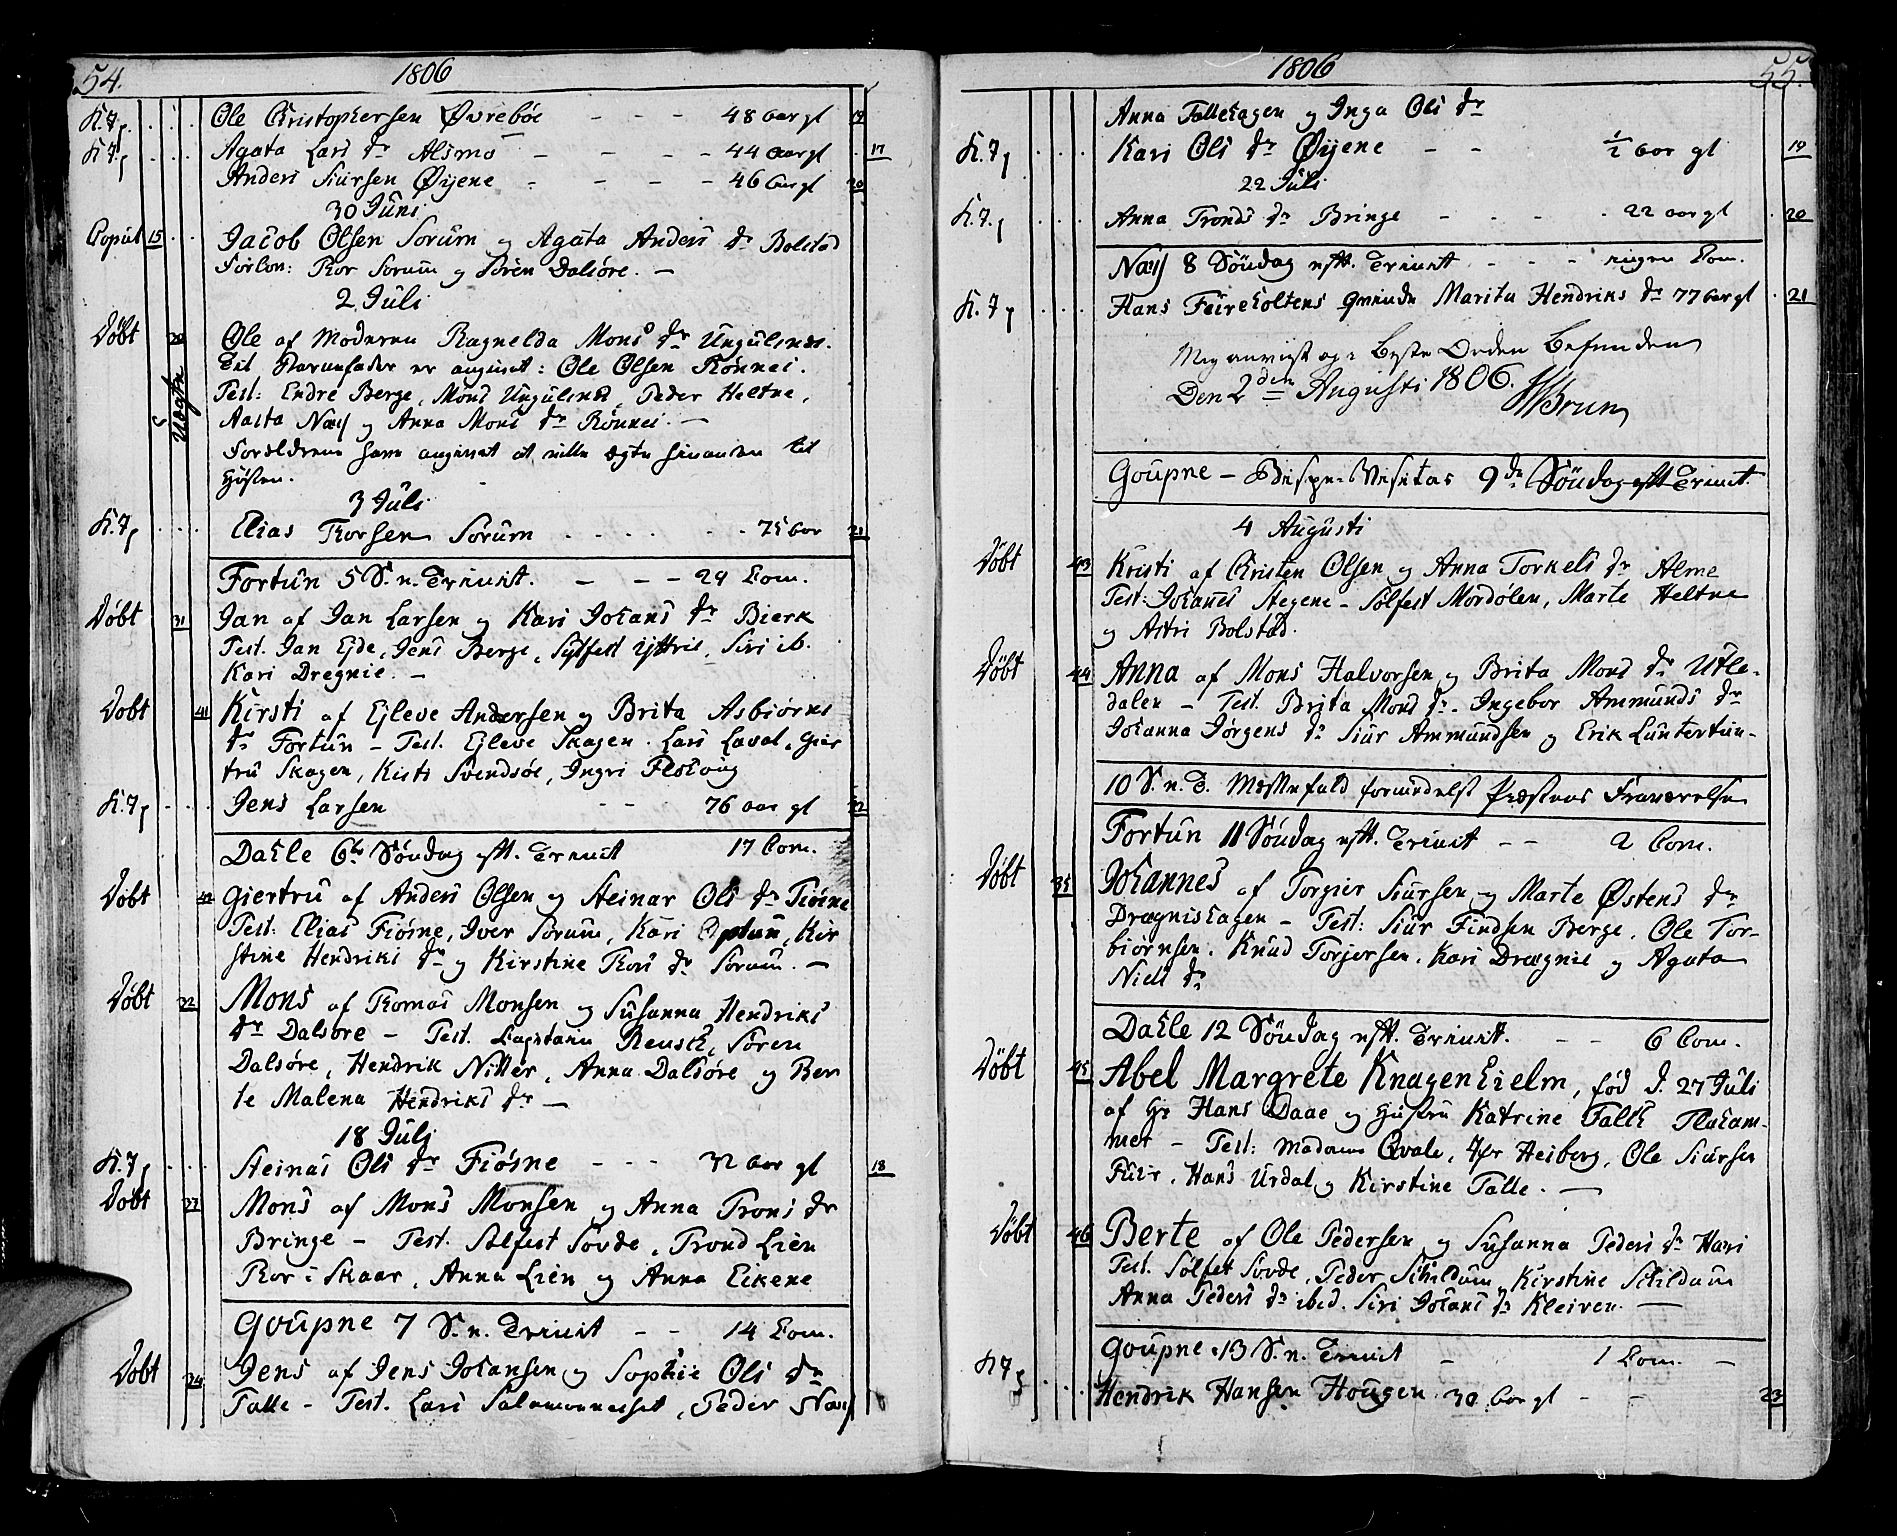 54. 1806
K. 7 Ole Christophersen Øvrebøe - - - 48 aar gl 19
K. 7 Agata Lars dr Alsmo - - - - 44 aar gl 17
Anders Siursen Øyene - - - - 46 aar gl 20
30 Juni
Copul 15 Jacob Olsen Sorum og Agata Anders dr Bolstad
Forlov: Thor Sorum og Søren Dalsøre. -
2 Juli
Døbt 30 Ole af Moderen Ragnelda Mons dr Ungulsnes.
Til Barnefader er angivet: Ole Olsen Rønnei.
Test: Endre Berge, Mons Ungulsnes, Peder Heltne,
Uægte Aasta Næss og Anna Mons dr Rønnei. -
Forældrene have angivet at ville ægte hinanden til
Høsten.
3 Juli
K. 7 Elias Thorsen Sorum . . . . 75 aar 21
Fortun 5 S. n. Trinit. - - - 29 Com.
Døbt 31 Jan af Jan Larsen og Kari Johans dr Bierk
Test. Jan Ejde, Jens Berge, Sylfest Yttrie, Siri ib.
Kari Dregnie. -
Døbt 41 Kirsti af Ejleve Andersen og Brita Asbiørns
dr Fortun - Test. Ejleve Skagen. Lars Laval, Gier
tru Skagen, Kisti Svendsøe, Ingri
K. 7 Jens Larsen - - 76 aar gl 22
Dahle 6te Søndag eft. Trinit 17 Com.
Døbt 42 Giertru af Anders Olsen og Steinar Ols dr Fiøsne
Test: Elias Fiøsne, Iver Sorum, Kari Optun, Kir
stine Hendriks dr og Kirstine Thors dr Sorum. -
Døbt 32 Mons af Thomas Monsen og Susanna Hendriks
dr Dalsøre - Test. Capitain Reusch, Søren
Dalsøre, Hendrik Nitter, Anna Dalsøre og Ber
te Malena Hendriks dr -
18 Juli
K. 7 Steinar Ols dr Fiøsne - - - 32 aar gl 18
Døbt 33 Mons af Mons Monsen og Anna Trons dr
Bringe - Test. Solfest Sovde, Trond Lien
Thor i Skaar, Anna Lien og Anna Eikene
Goupne 7 S. n. Trinit - - 14 Com.
Døbt 34 Jens af Jens Johansen og Sophie Ols dr
Talle - Test. Lars , Peder Næss
1806 55.
Anna Tallehagen og Inga Ols dr
K. 7 Kari Ols dr Øyene - - ½ aar gl 19
22 Juli
K. 7. Anna Tronds dr Bringe - - - 22 aar gl 20
Næss 8 Søndag eft. Trinit - - - ingen Com.
K. 7 Hans Feireholtens Qvinde Marita Hendriks dr 77 aar gl 21
Mig anviist og i Beste Orden Befunden
Den 2den Augusti 1806. Brun
Goupne - Bispe-Visitas 9de Søndag eft Trinit.
4 Augusti
Døbt 43 Kristi af Christen Olsen og Anna Torkels dr Alme
Test: Johanes Stegene - Solfest Mordølen, Marte Heltne
og Astri Bolstad.
Døbt 44 Anna af Mons Halvorsen og Brita Mons dr Utle-
dalen - Test. Brita Mons dr. Ingebor Ammunds dr
Johanna Jørgens dr Siur Ammundsen og Erik Luntertun-
10 S. n. T. Messefald formedelst Præstens Fraværelse
Fortun 11 Søndag eft. Trinit - - 2 Com.
Døbt 35 Johannes af Torgier Siursen og Marte Østens dr
Drægnishagen - Test: Siur Findsen Berge. Ole Tor-
biørnsen. Knud Torjersen. Kari Drægnie og Agata
Niels dr
Dahle 12 Søndag eft. Trinit. - - 6 Com.
Døbt 45 Abel Margrete Knagenhielm, fød d. 27 Juli
af Hr Hans Daae og Hustru Katrine Falch Flaham-
mer - Test: Madame Qvale, Jfr Heiberg, Ole Siursen
Fuir. Hans Urdal og Kirstine Talle. -
Døbt 46 Berte af Ole Pedersen og Susanna Peders dr Hari
Test. Solfest Sovde, Peder Skildum, Kirstine Skildum
Anna Peders dr ibid. Siri Johans dr Kleiven. -
Goupne 13 S. n. Trinit - 1 Com. -
K 7 Hendrik Hansen Hougen 30 aar gl - - 23